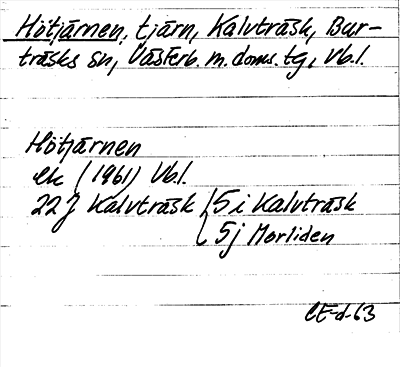 Hötjärnen, tjärn, Kalvträsk, Bur-
träsks sn, Västerb. m. doms. tg, Vb.l.
Hötjärnen
ek (1961) Vb.l.
22 J Kalvträsk 5 i Kalvträsk
5 j Morliden
CE-d-63